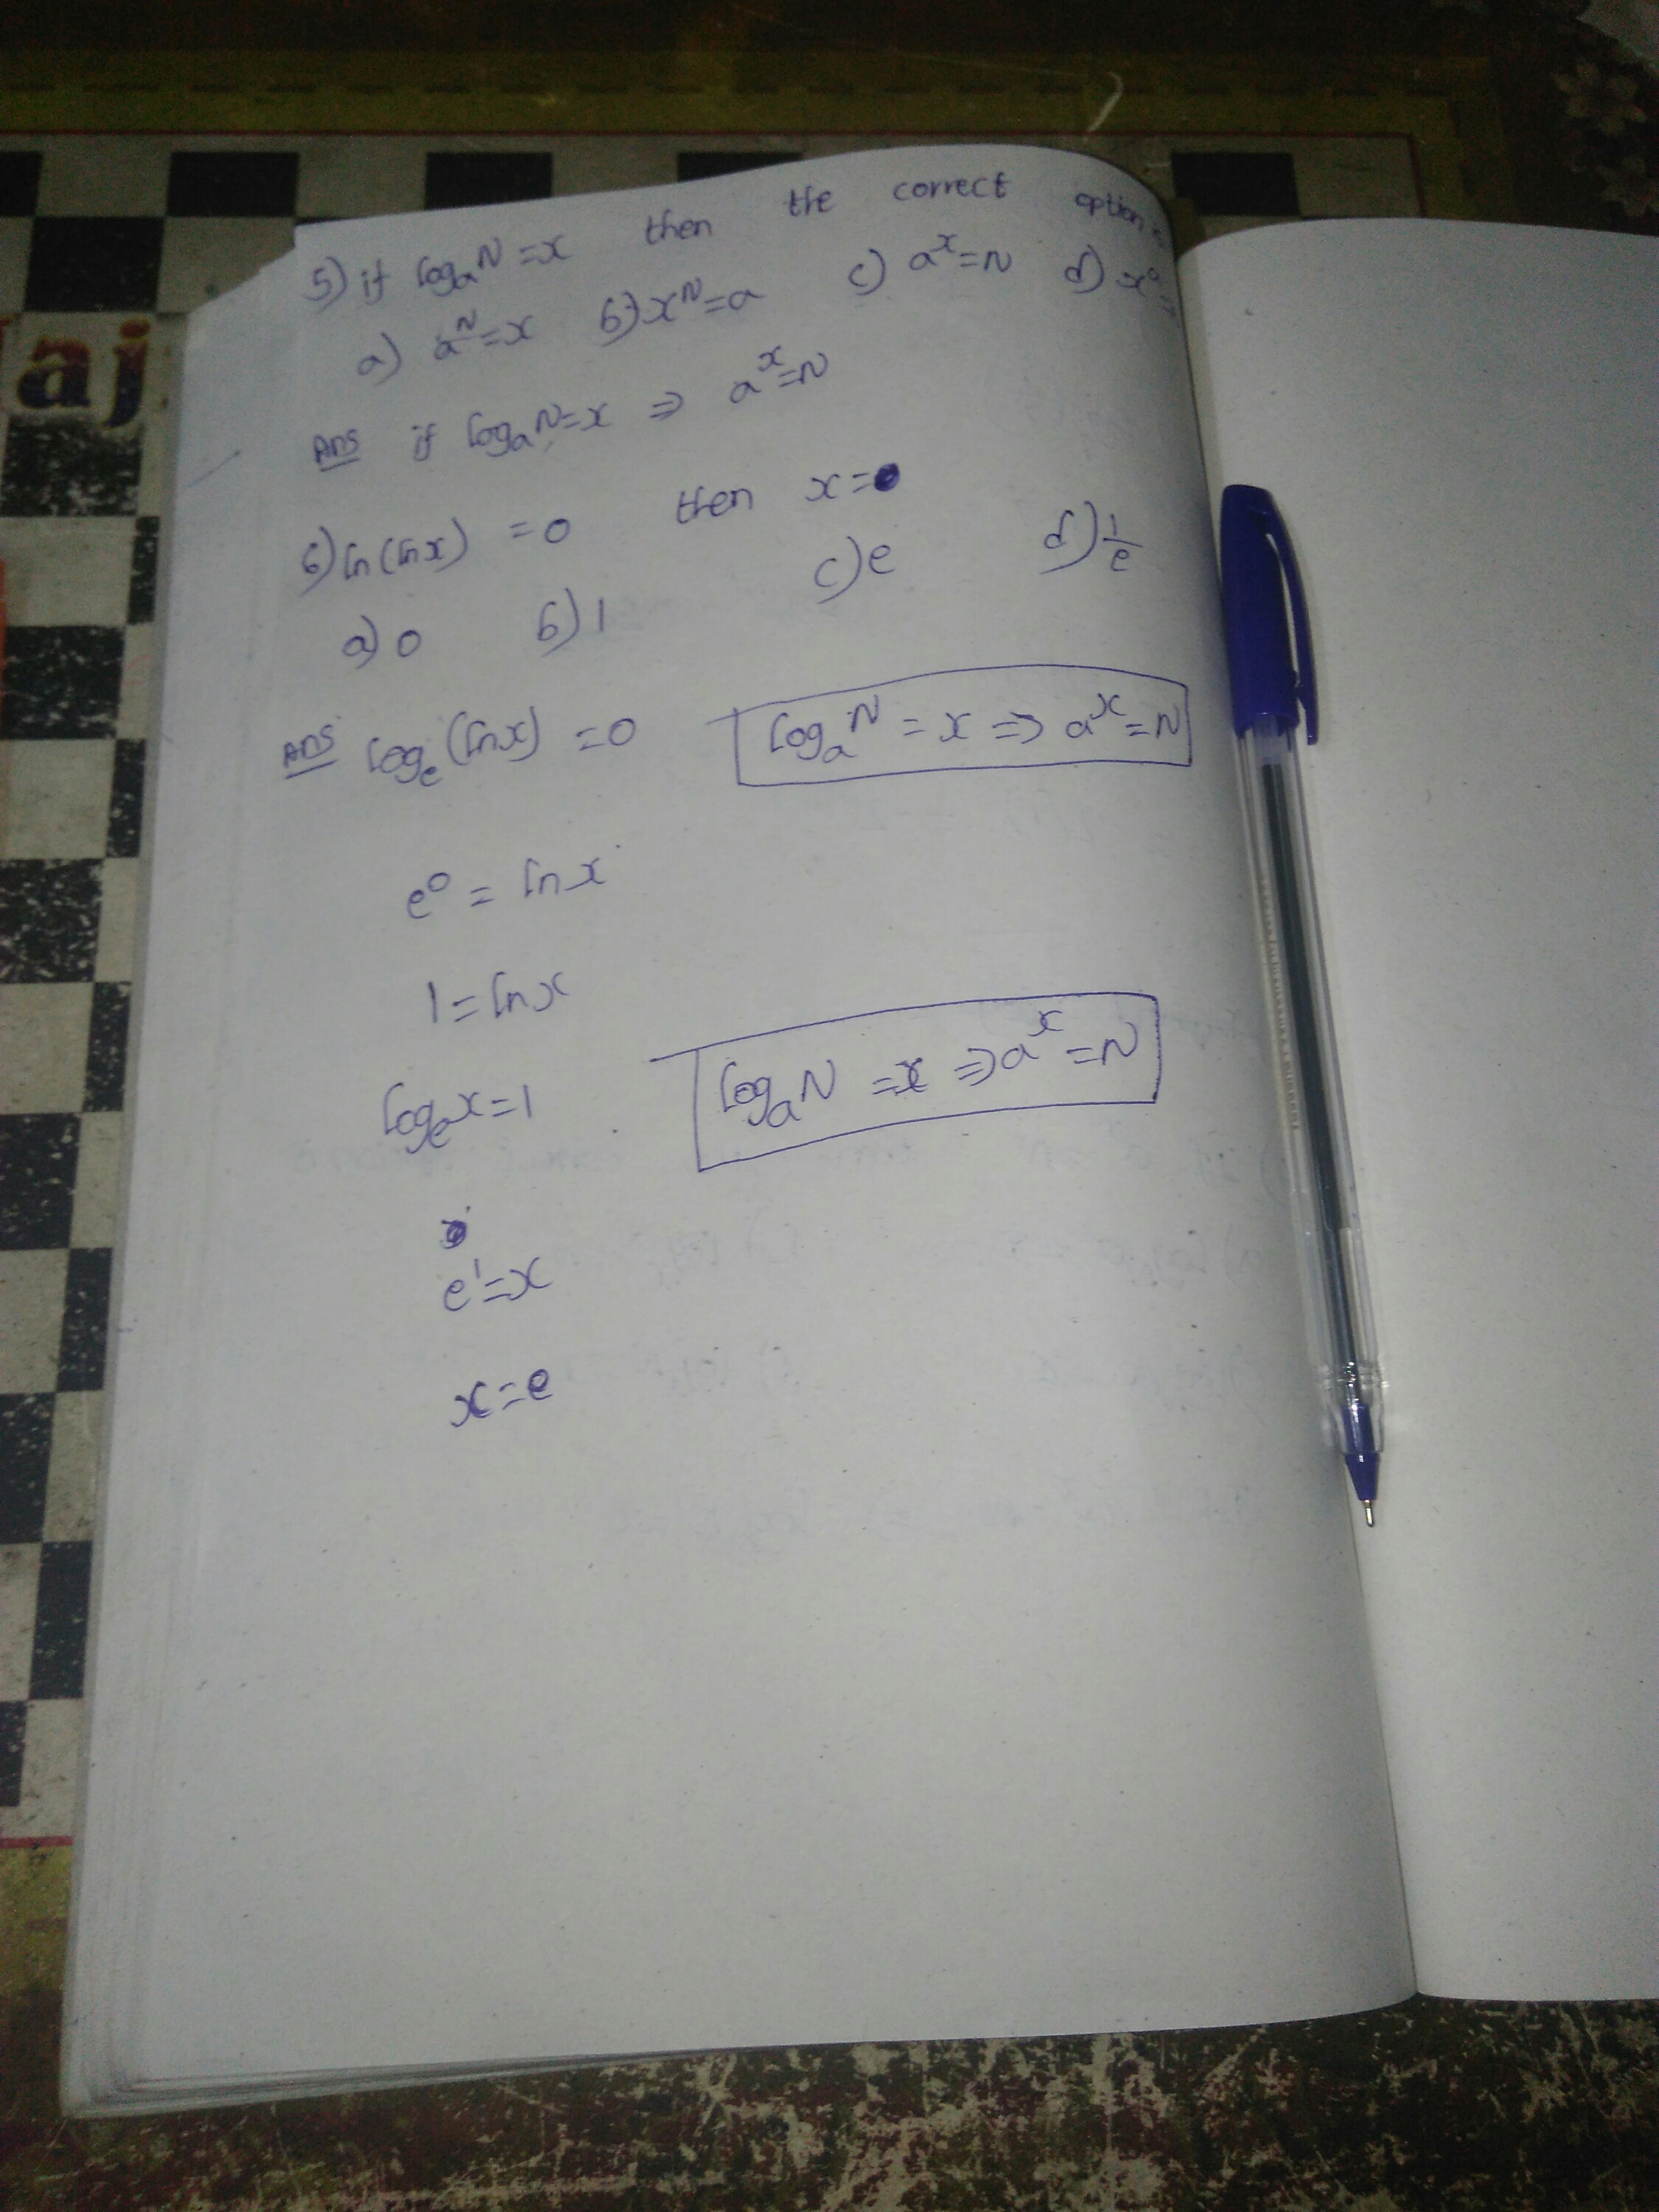 5) if logₐN = x then the correct option
a) aᴺ = x b) xᴺ = a c) aˣ = N d) xᵃ =
Ans if logₐN = x ⇒ aˣ = N
6) ln(lnx) = 0 then x =
a) 0 b) 1 c) e d) 1/e
Ans logₑ(lnx) = 0 logₐN = x ⇒ aˣ = N
e⁰ = lnx
1 = lnx
logₑx = 1 logₐN = x ⇒ aˣ = N
e¹ = x
x = e
aj